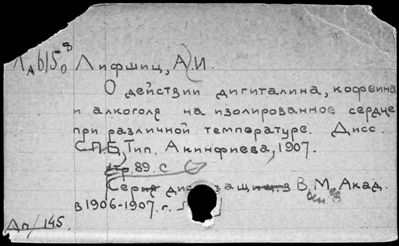 Лифшиц, А.И.
О действии дигиталина, кофеина
и алкоголя на изолированное сердце
при различной температуре. Дисс.
С.П.Б, Тип. Акинфиева, 1907.
стр. 89. с
Серия диссе защи в В.М. Акад.
в 1906-1907. г.
Дп/145.